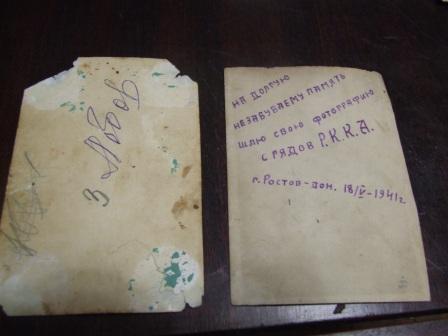 З Любов
на долгую
незабуваему память
шлю свою фотографию
с рядов Р.К.К.А.
г. Ростов-дон. 18/V-1941г